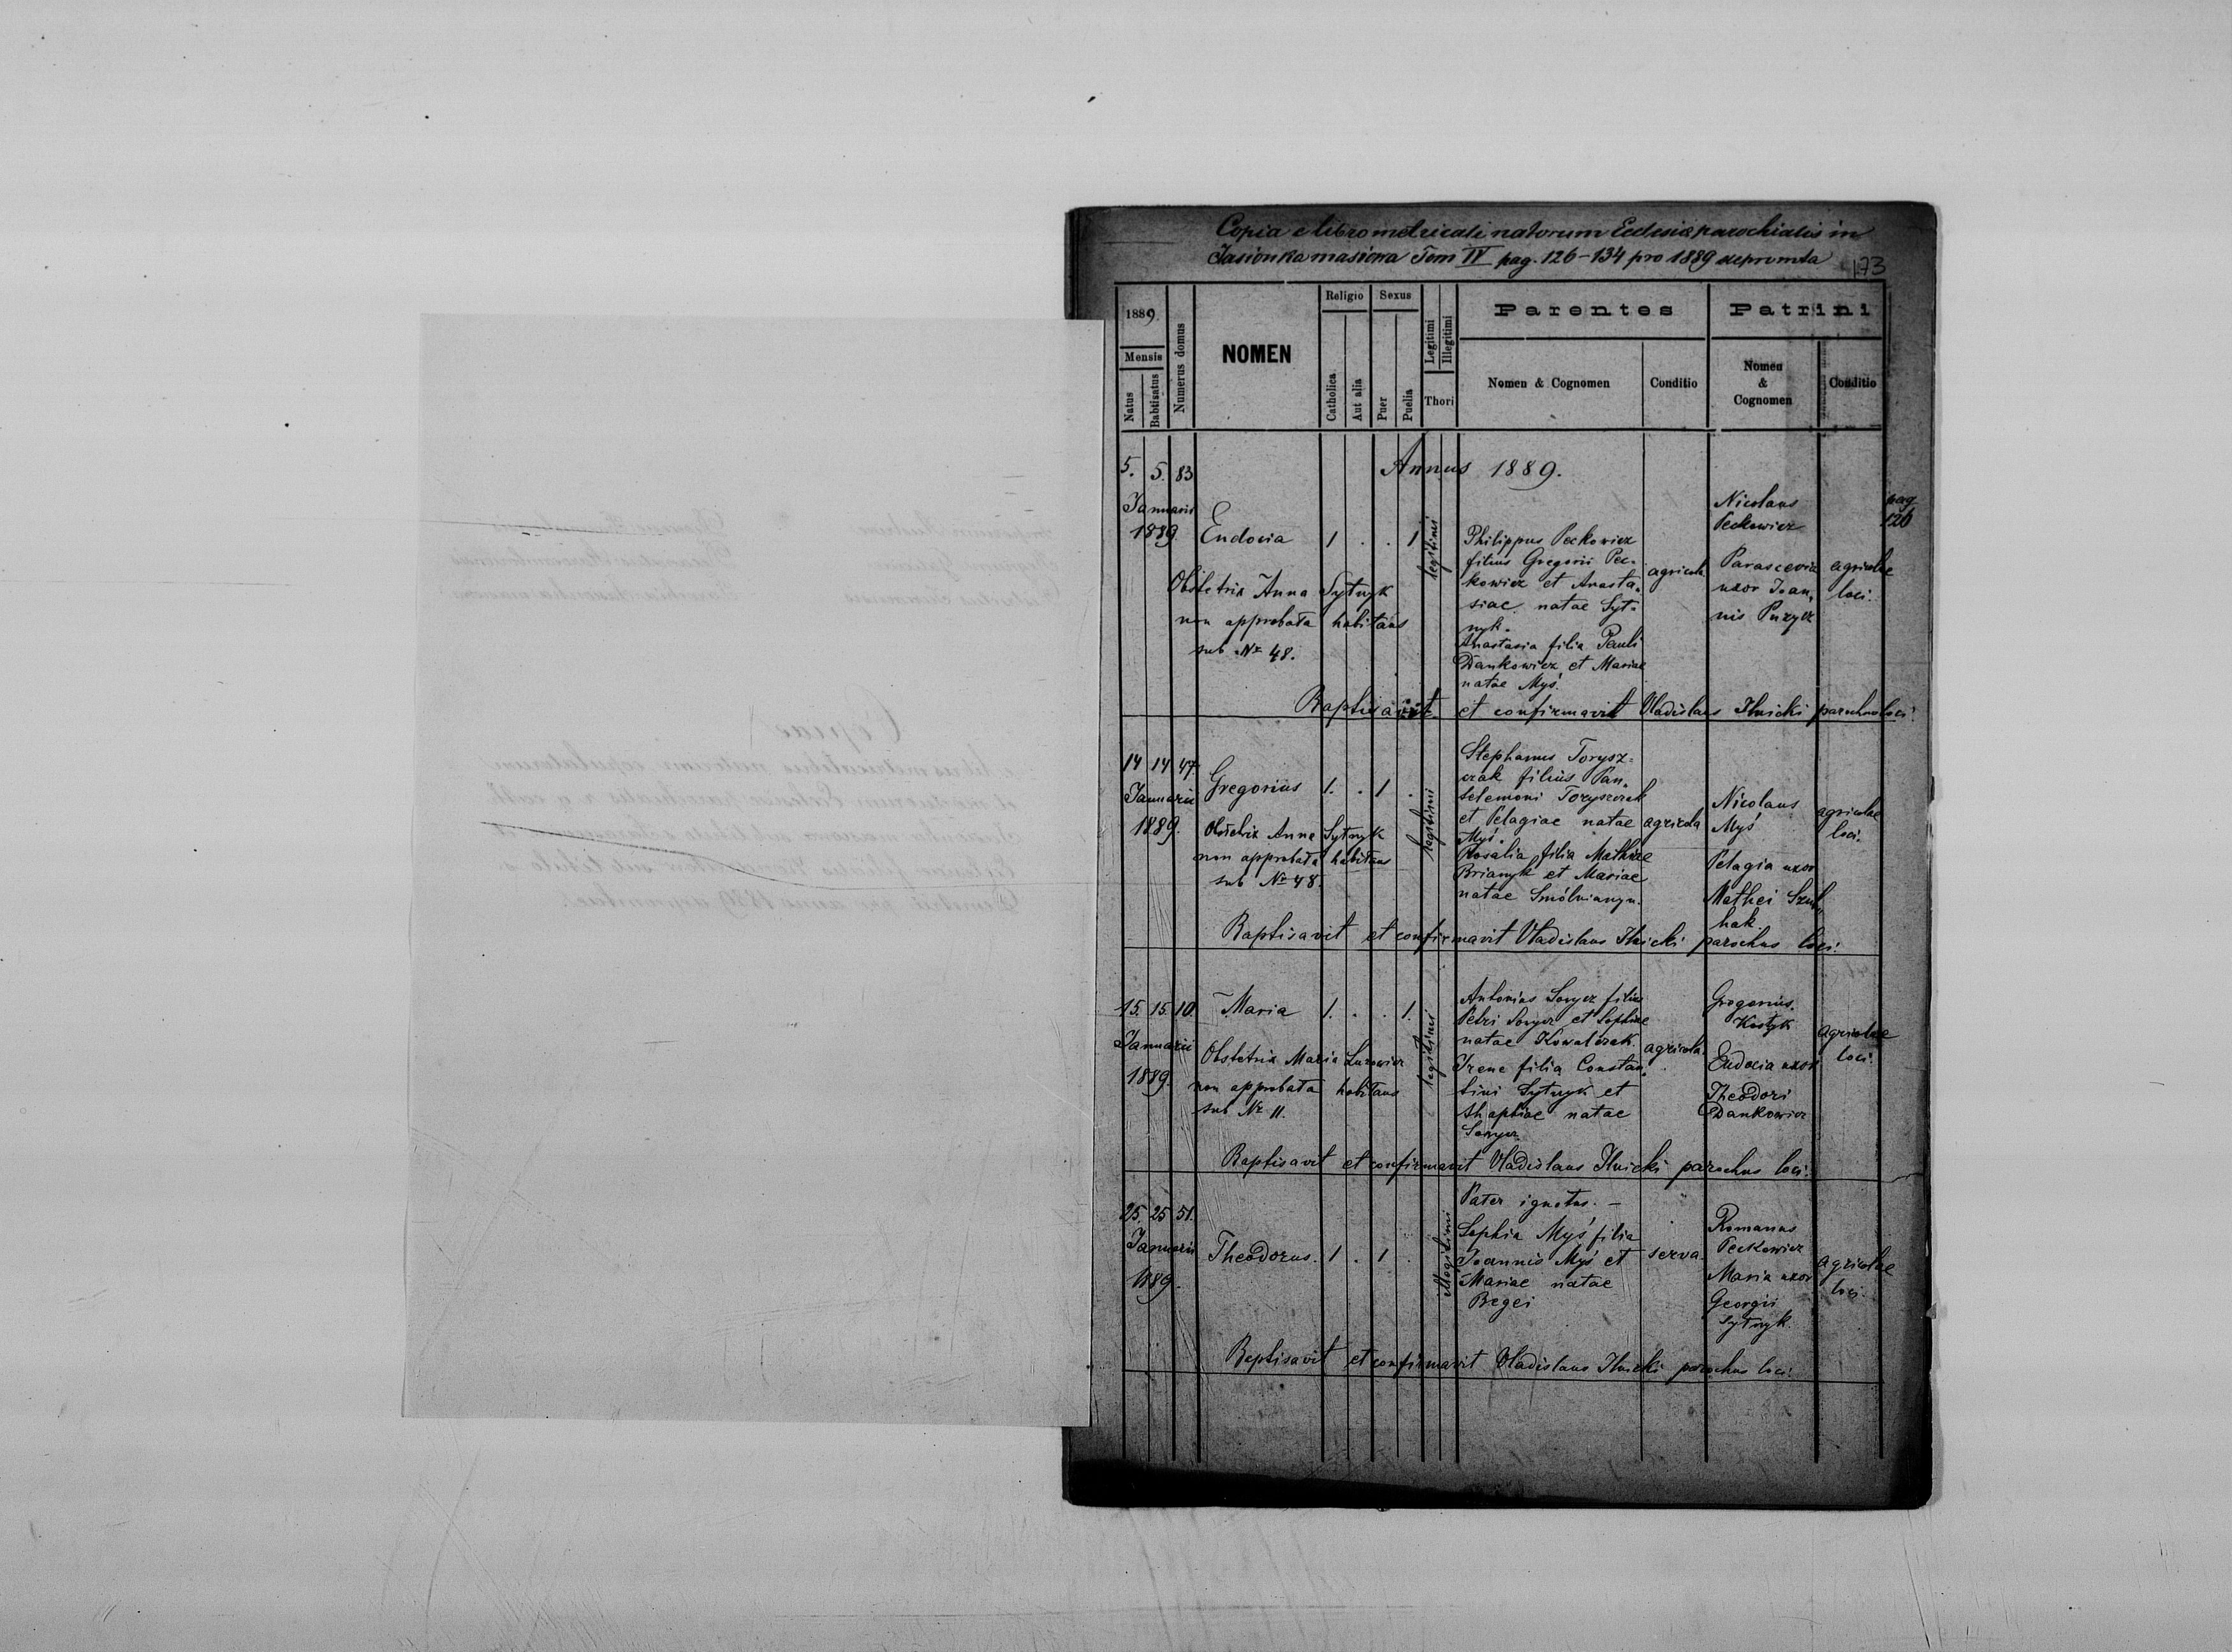 Copia e libro metricali natorum Ecclesiæ parochialis in
Jasionka masiowa Tom IV pag. 126-134 pro 1889 depromta
173
1889.
Mensis
Natus
Babtisatus
Numerus domus
NOMEN
Religio
Catholica
Aut alia
Sexus
Puer
Puella
Legitimi
Illegitimi
Thori
Parentes
Nomen & Cognomen
Conditio
Patrini
Nomen
&
Cognomen
Conditio
Annus 1889.
pag
126
5. 5. 83
Januarii
1889.
Eudocia 1 . . 1
legitimi
Obstetrix Anna Sytnyk
non approbata habitans
sub No 48.
Philippus Peckowicz
filius Gregorii Pec-
kowicz et Anasta-
siae natae Syt-
nyk.
Anastasia filia Pauli
Dankowicz et Mariae
natae Myś.
agricola
Nicolaus
Peckowicz
Parascevia
uxor Joan-
nis Puzycz
agricolae
loci.
Baptisavit et confirmavit Vladislaus Ilnicki parochus loci.
14 14 47
Januarii
1889.
Gregorius 1. . 1 .
legitimi
Obstetrix Anna Sytnyk
non approbata habitans
sub No 48.
Stephanus Torysz-
czak filius Pan-
telemoni Toryszczak
et Pelagiae natae
Myś.
Rosalia filia Mathiae
Brianyk et Mariae
natae
agricola
Nicolaus
Myś
Pelagia uxor
Mathei
hak.
agricolae
loci.
Baptisavit et confirmavit Vladislaus Ilnicki parochus loci.
15. 15. 10.
Januarii
1889.
Maria 1. . . 1.
legitimi
Obstetrix Maria
non approbata habitans
sub No 11.
Antonius Sonycz filius
Petri Sonycz et Sophiae
natae Kowalczak.
Irene filia Constan-
tini Sytnyk et
natae
Sonycz
agricola.
Gregorius
Kostyk
Eudocia uxor
Theodori
Dankowicz
agricolae
loci.
Baptisavit et confirmavit Vladislaus Ilnicki parochus loci.
25. 25 51.
Januarii
1889.
Theodorus. 1 . 1 .
illegitimi
Pater ignotus. -
Sophia Myś filia
Joannis Myś et
Mariae natae
Begei
serva
Romanus
Peckowicz
Maria uxor
Georgii
Sytnyk.
agricolae
loci
Baptisavit et confirmavit Vladislaus Ilnicki parochus loci.